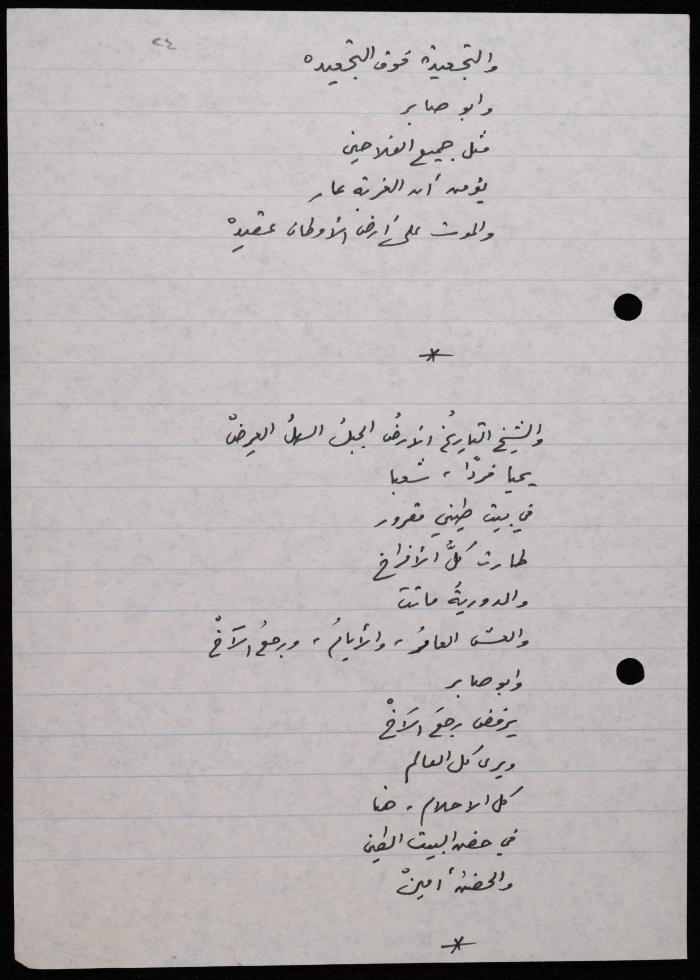 ٢٤
والتجعيدة فوق التجعيده
وابو صابر
مثل جميع الفلاحين
يؤمن أن الغربة عار
والموت على أرض الأوطان عقيدهْ
*
والشيخ التاريخُ الأرضُ الجبلُ السهلُ العريضْ
يحيا فردًا ، شعبا
في بيت طيني مقرور
طارت كلُّ الأفراخ
والدوريةُ ماتت
والعش العامرُ ، والأيامُ ، ورجعُ الآخْ
وابو صابر
يرفض رجعَ الآخْ
ويرى كل العالم
كل الاحلام ، هنا
في حضن البيت الطيني
والحضنُ أمينْ
*